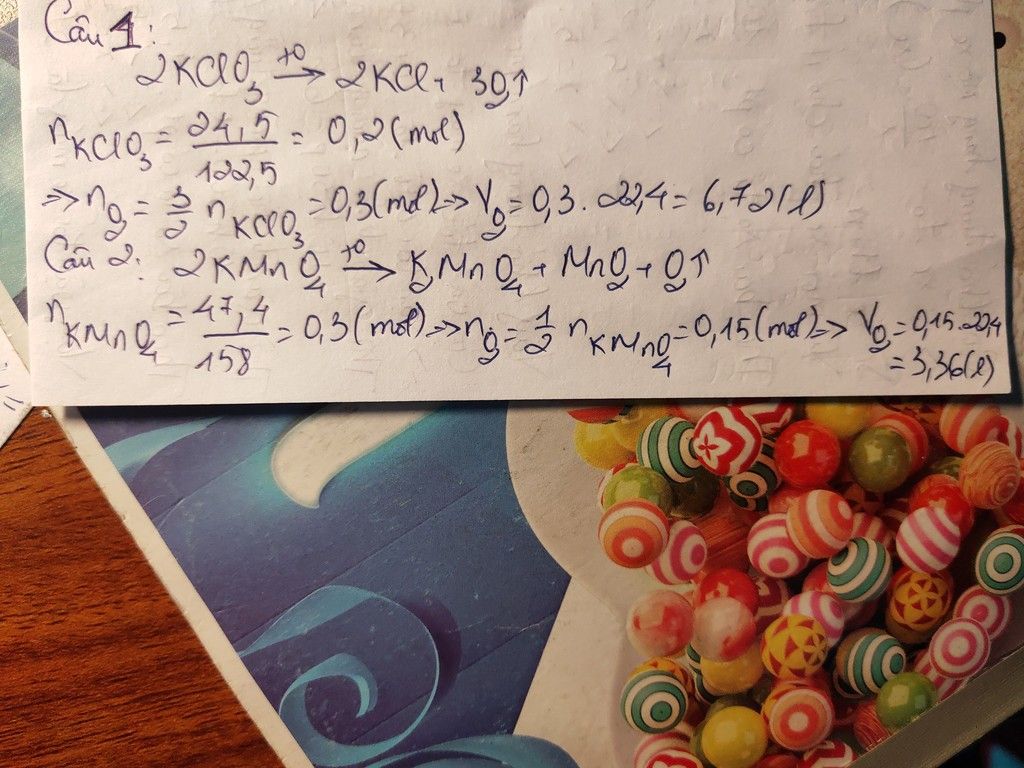 Câu 1:
2KClO₃ —t⁰→ 2KCl + 3O₂↑
n_KClO₃ = 24,5/122,5 = 0,2 (mol)
=> n_O₂ = 3/2 n_KClO₃ = 0,3 (mol) => V_O₂ = 0,3 . 22,4 = 6,72 (l)
Câu 2: 2KMnO₄ —t⁰→ K₂MnO₄ + MnO₂ + O₂↑
n_KMnO₄ = 47,4/158 = 0,3 (mol) => n_O₂ = 1/2 n_KMnO₄ = 0,15 (mol) => V_O₂ = 0,15 . 22,4
= 3,36 (l)